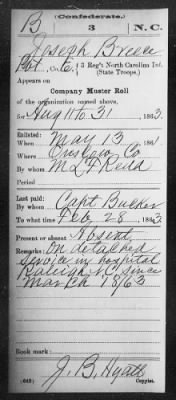 (Confederate.)
B 3 N.C.
Joseph Breece
Pvt., Co. E, 3 Reg't North Carolina Inf.
(State Troops.)
Appears on
Company Muster Roll
of the organization named above,
for Aug 11 to 31, 1863.
Enlisted:
When May 13, 186
Where Onslow Co
By whom M L F Redd
Period
Last paid:
By whom Capt
To what time Feb 28, 1863.
Present or absent Absent
Remarks: On detached
service in hospital
Raleigh N.C. since
March 1863
Book mark:
J. B. Hyatt
(642) Copyist.